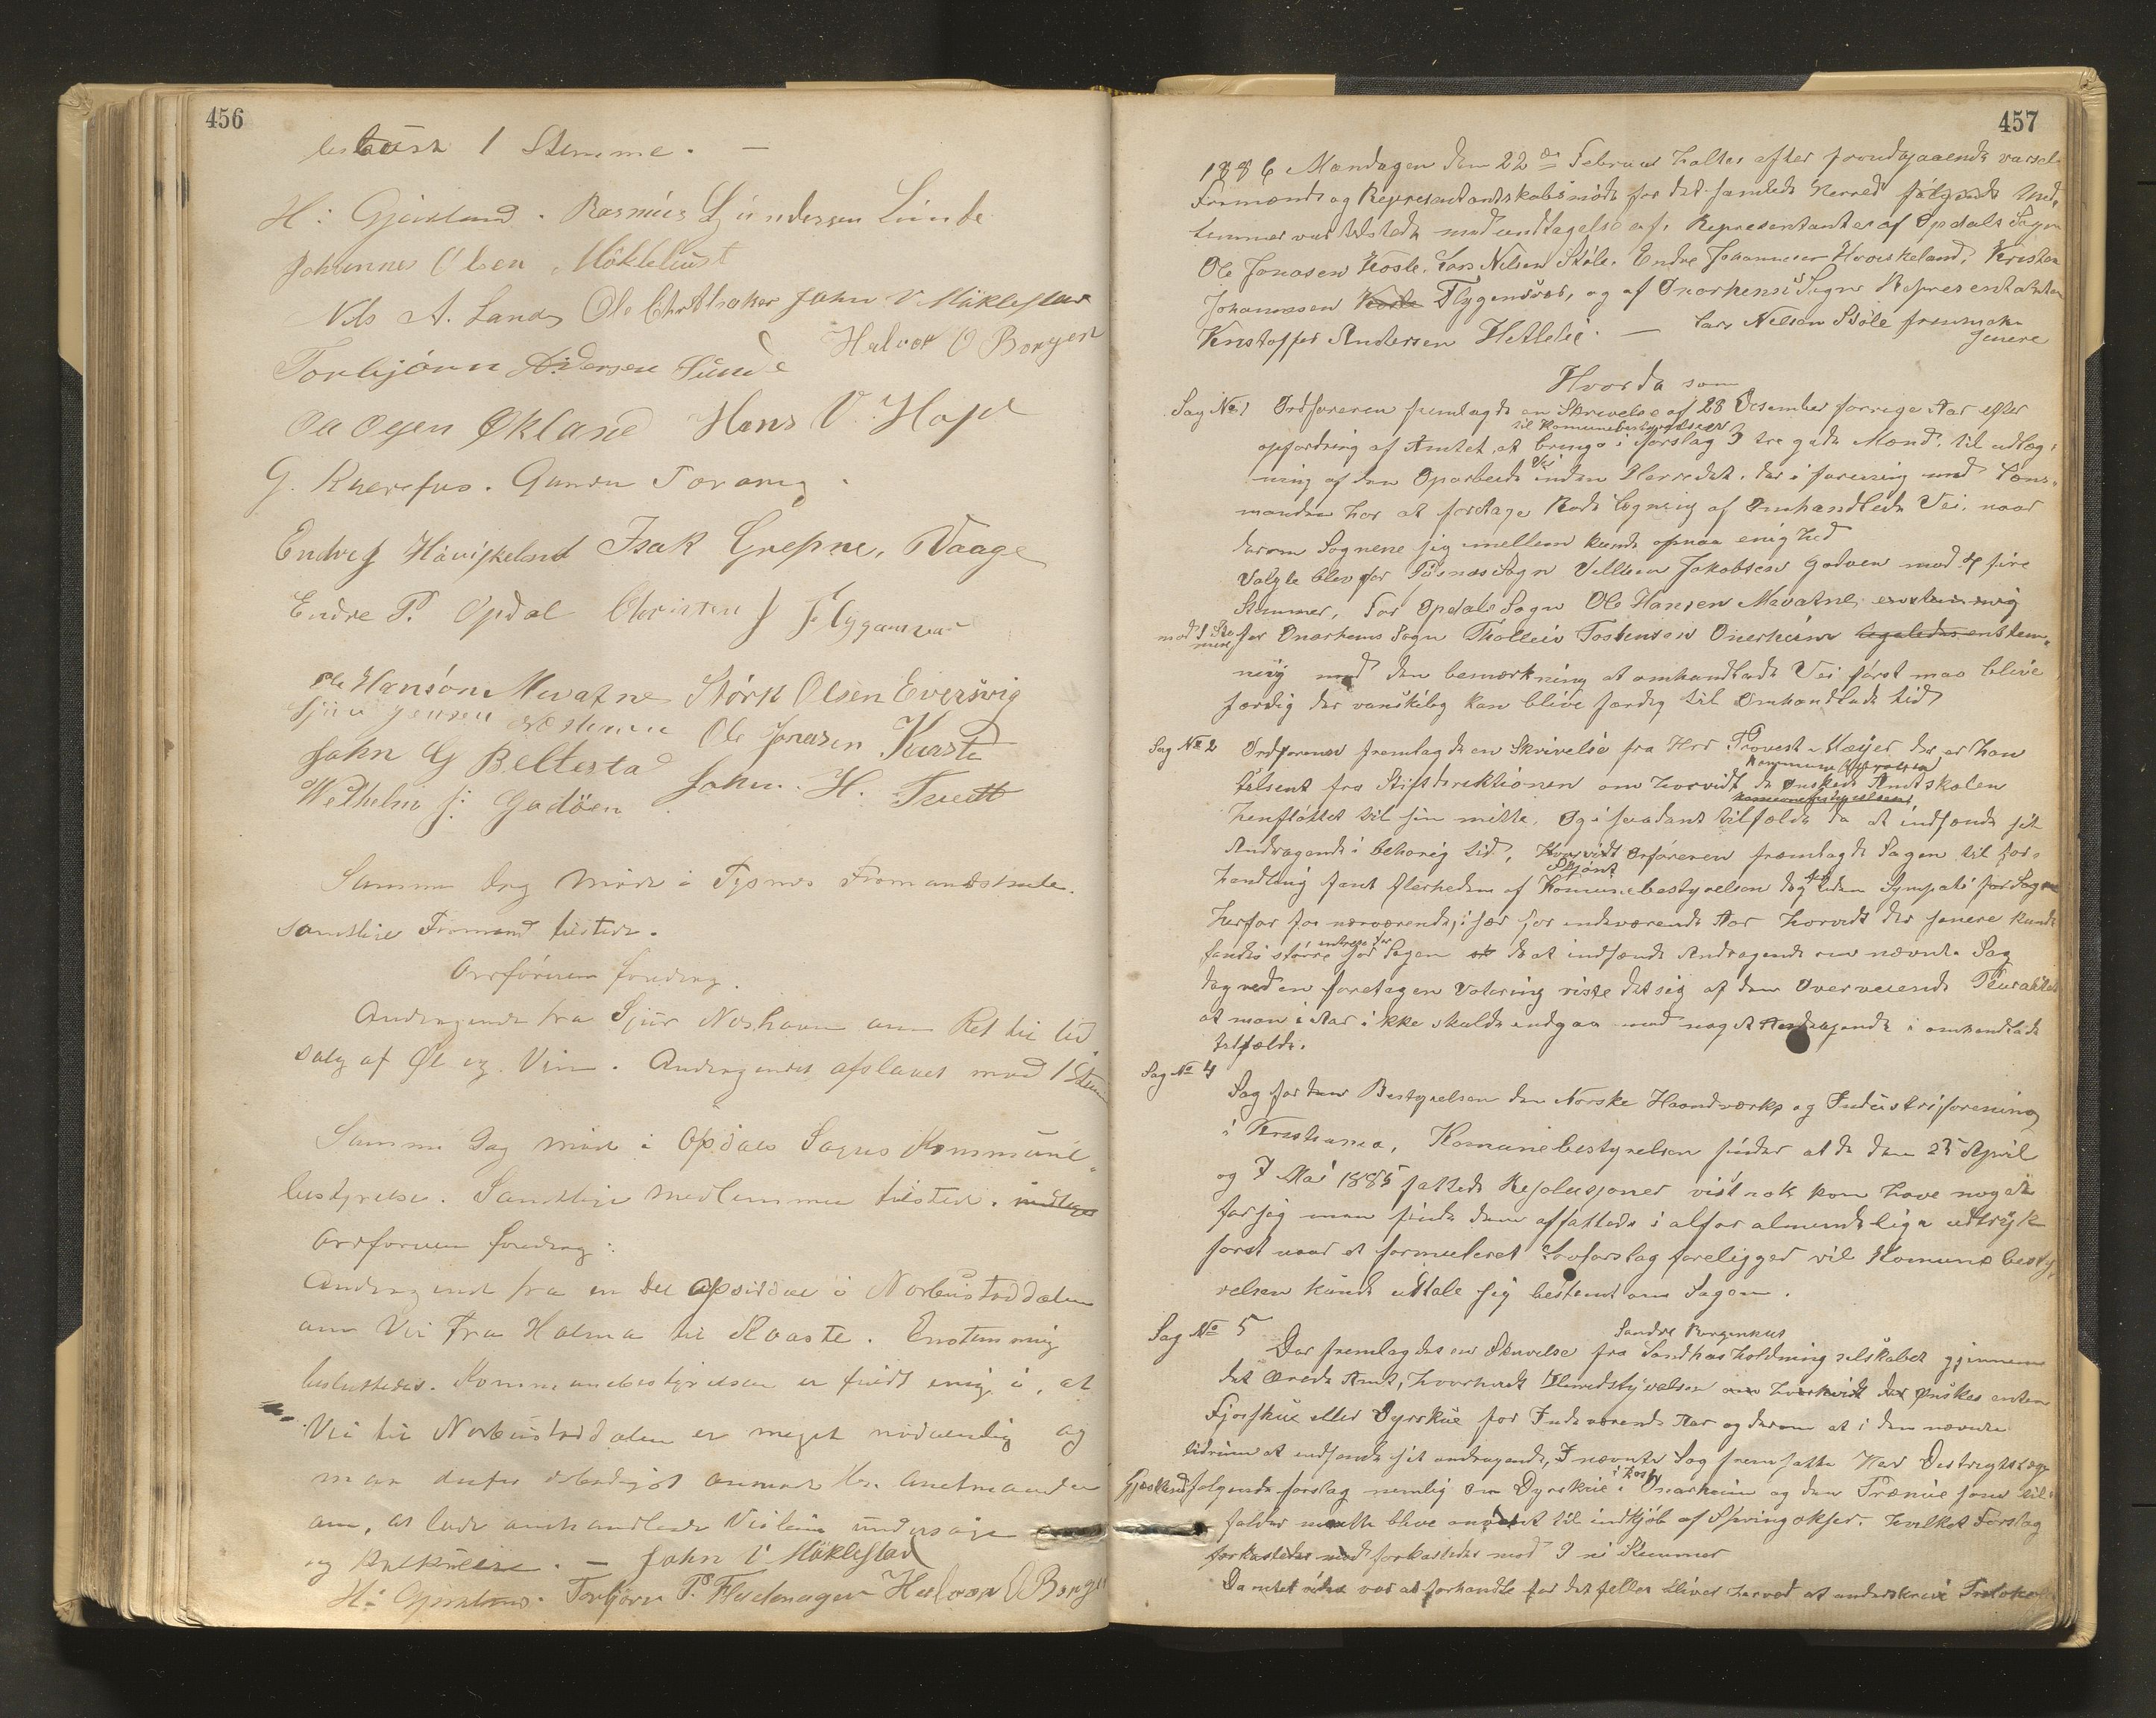 456
1 Stemme. —
H: Gjerland. Rasmus Gundersen Lunde
Johannes Olsen Mökleüst
Nils A. Landø Ole Chr Alsaker John V Mäklestad
Torbjörn Andersen Sünde Halvor O Borgen
Ola Ogen Økland Hans V. Hope
G. Gunder
Endre J Håvişkeland Isak Grepne, Vaage
Endre P. Opdal Christen J Flygansvær
Ole Hansøn Mevatne Størk Olsen Eversvig
Sjur Jensen Ole Jonasen Kaaste
John G Beltestad
Wilhelm J: Godöen John. H. Tveitt
Samme dag Møde i Tysnes Formandskab.
samtlige Formænd tilstede.
Ordføreren foredrog.
Andragende fra Sjur Neshavn om Ret til Ud-
salg af Øl og Vin. Andragendet afslaaet mod 1 Stem
Samme Dag møde i Opdals Sogns Kommune-
bestyrelse. Samtlige Medlemmer tilstede.
Ordføreren foredrog:
Andragende fra en Del Opsiddere i Norbüstaddalen
om Vei fra Holma til Kaaste. Enstemmig
besluttedes. Kommunebestyrelsen er fuldt enig i, at
Vei til Norbüstaddalen er meget nødvendig og
man Hr. Amtmanden
om, at lade omhandlede Veilinie undersøge
og . — John V Mäklestad
H: Gjerland. Torbjörn P. Flademagen Halvor O Borgen
457
1886 Mandagen den 22de Februar holtes efter forudgaaende varsel
Formands og Representantskabsmöde for det samlede Herred følgende Med-
lemmer var tilstede med undtagelse af, Representanter af Opdals Sogn
Ole Jonasen Koste. Lars Nilsen Støle. Endre Johannesen Hovskeland, Kristen
Johannesen Flygensvær, og af Onarheims Sogn Representanten
Kristoffer Andersen Hetleli. — Lars Nelsen Støle fremmøtte
senere
Hvorda som
Sag No 1 Ordføreren fremlagde en Skrivelse af 28 Desember forrige Aar efter
til Komunebestyrelsen
opfordring af Amtet, at bringe i forslag 3 tre gode Mænd til udlæg-
Vei
ning af den Oparbeide inden Herredet, der i forening med Læns-
manden har at foretage Rodelægning af Omhandlede Vei, naar
derom Sognene sig imellem kunde opnaa enighed
Valgte blev for Tüsnæs Sogn Villum Jakobsen Godøen med 4 fire
Stemmer, For Opdals Sogn Ole Hansen Mevatne, enstemmig
med 1 Ste
mme for Onarheims Sogn Tholleiv Tostensen Onerheim ligeledes enstem-
mig med den bemærkning at omhandlede Vei først maa blive
færdig der vanskelig kan blive færdig til Omhandlede tid
Sag No 2 Ordføreren fremlagde en Skrivelse fra Hrr Provest Meyer der er ham
Kommunebestyrelsen
tilsent fra Stiftdirektionen om hvorvidt de ønskede Amtskolen
Kommunebestyrelsen
henflöttet til sin midte, Og i saadant tilfælde da at indsende sit
Andragende i behørig tid, Hvorvidt Orføreren fremlagde Sagen til for-
Skjönt
handling fant flerheden af Komunebestyrelsen dog liden Sympati for Sagen
herfor for nærværende, især for indeværende Aar hvorvidt der senere kunde
intrese for
findes större for Sagen da at indsende Andragende om nævnte Sag
dog ved en foretagen Votering viste det sig af den Overveiende Pluralitet
at man i Aar ikke skulde indgaa med noget Andragende i omhandlede
tilfælde.
Sag No 4
Sag fra Bestyrelsen den Norske Haandværks og Indüstriforening
i Kristiania, Komunebestyrelsen finder at de den 25 April
og 7 Mai 1885 fattede Resolusjoner vistnok kan have noget
for sig man finde dem affattede i alfor almindelige udtryk
først naar et formuleret Lovforslag foreligger vil Komunebesty-
relsen kunde udtale sig bestemt om Sagen.
Sag No 5 Søndre Bergenhus
Der fremlagdes en Skrivelse fra Landhusholdning selskabet gjennem
det Ærede Amt, hvorhvidt Herredstyrelsen om hvorhvidt der ønskes enten
Fjøsskue eller Dyrskue for Indeværende Aar og derom at i den nævnte
tidrum at indsende sit andragende, I nævnte Sag fremsatte Her Destrigtslæge
Gjerland følgende forslag nemlig om Dyrskue i Onarheim og den Præmie som til-
falder maatte blive anvendt til indkjøb af Springokser. hvilket Forslag
forkastedes med forkastedes mod 9 ni Stemmer
Da intet videre var at forhandle for det felles blives herved at underskrive Protokollen